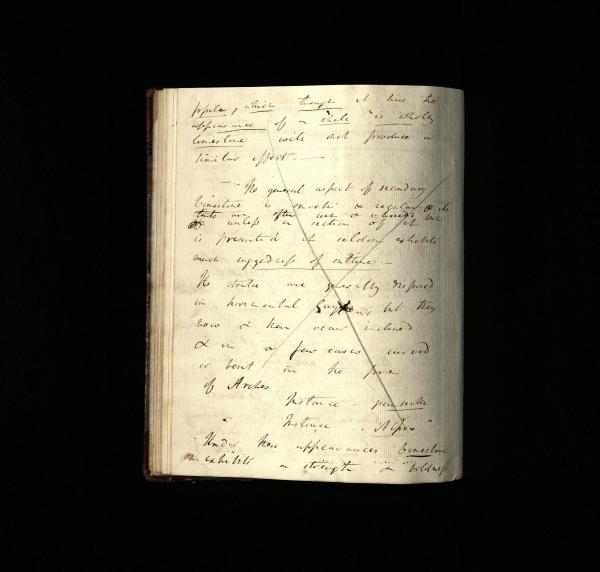 people, which though it has the
appearance of a "shale" is wholly
limestone will not produce a
similar effect. —
— The general aspect of secondary
limestone is smooth & regular & its
tints are often wet &
unless a section of it
is presented it seldom exhibits
much ruggedness of outline. —
The strata are generally disposed
in horizontal layers but they
now & then occur inclined
& in a few cases curved
or bent in the form
of Arches
Instance –
Instance .
Under these appearances Limestone
exhibits a strength & boldness